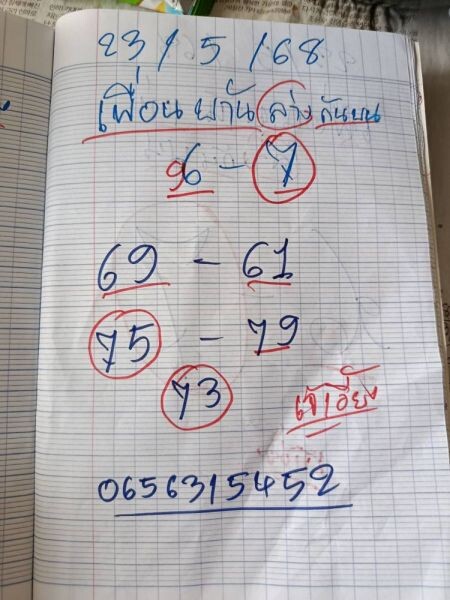 23 / 5 / 68
เพื่อน พานัน ล่าง กันบน
6 - 7
69 - 61
75 - 79
73
เจ๊เอี้ยง
0656315452